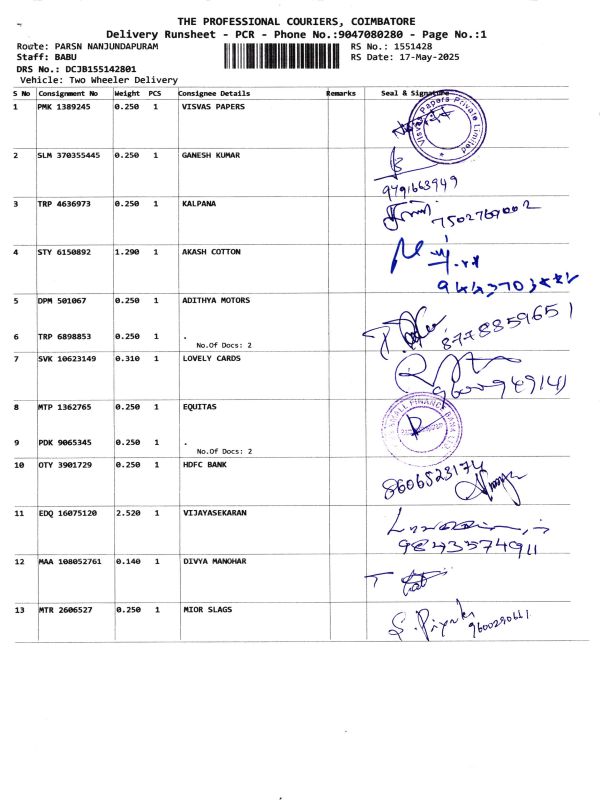 THE PROFESSIONAL COURIERS, COIMBATORE
Delivery Runsheet - PCR - Phone No.:9047080280 - Page No.:1
Route: PARSN NANJUNDAPURAM RS No.: 1551428
Staff: BABU RS Date: 17-May-2025
DRS No.: DCJB155142801
Vehicle: Two Wheeler Delivery
S No Consignment No Weight PCS Consignee Details Remarks Seal & Signature
1 PMK 1389245 0.250 1 VISVAS PAPERS
Visvas Papers Private Limited
2 SLM 370355445 0.250 1 GANESH KUMAR
9791663949
3 TRP 4636973 0.250 1 KALPANA
7502769002
4 STY 6150892 1.290 1 AKASH COTTON
5 DPM 501067 0.250 1 ADITHYA MOTORS
8778859651
6 TRP 6898853 0.250 1 .
No.Of Docs: 2
7 SVK 10623149 0.310 1 LOVELY CARDS
8 MTP 1362765 0.250 1 EQUITAS
9 PDK 9065345 0.250 1 .
No.Of Docs: 2
10 OTY 3901729 0.250 1 HDFC BANK
8606523174
11 EDQ 16075120 2.520 1 VIJAYASEKARAN
9843574911
12 MAA 108052761 0.140 1 DIVYA MANOHAR
13 MTR 2606527 0.250 1 MIOR SLAGS
9600290611